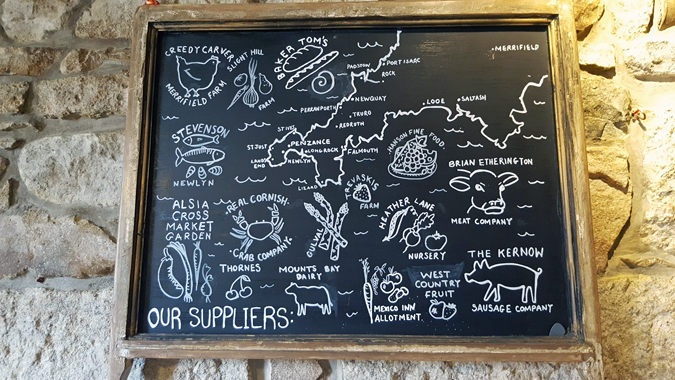 CREEDY CARVER
MERRIFIELD FARM
SLIGHT HILL
FARM
BAKER TOM'S
MERRIFIELD
PADSTOW
PORT ISAAC
ROCK
NEWQUAY
PERRANPORTH
TRURO
REDRUTH
LOOE
SALTASH
ST IVES
ST JUST
PENZANCE
LONGROCK
FALMOUTH
LANDS
END
NEWLYN
LIZARD
STEVENSON
NEWLYN
HANSON FINE FOOD
BRIAN ETHERINGTON
MEAT COMPANY
ALSIA
CROSS
MARKET
GARDEN
REAL CORNISH
CRAB COMPANY
GULVAL
TREVASKIS
FARM
HEATHER LANE
NURSERY
THORNES
MOUNTS BAY
DAIRY
MEXICO INN
ALLOTMENT
WEST
COUNTRY
FRUIT
THE KERNOW
SAUSAGE COMPANY
OUR SUPPLIERS: